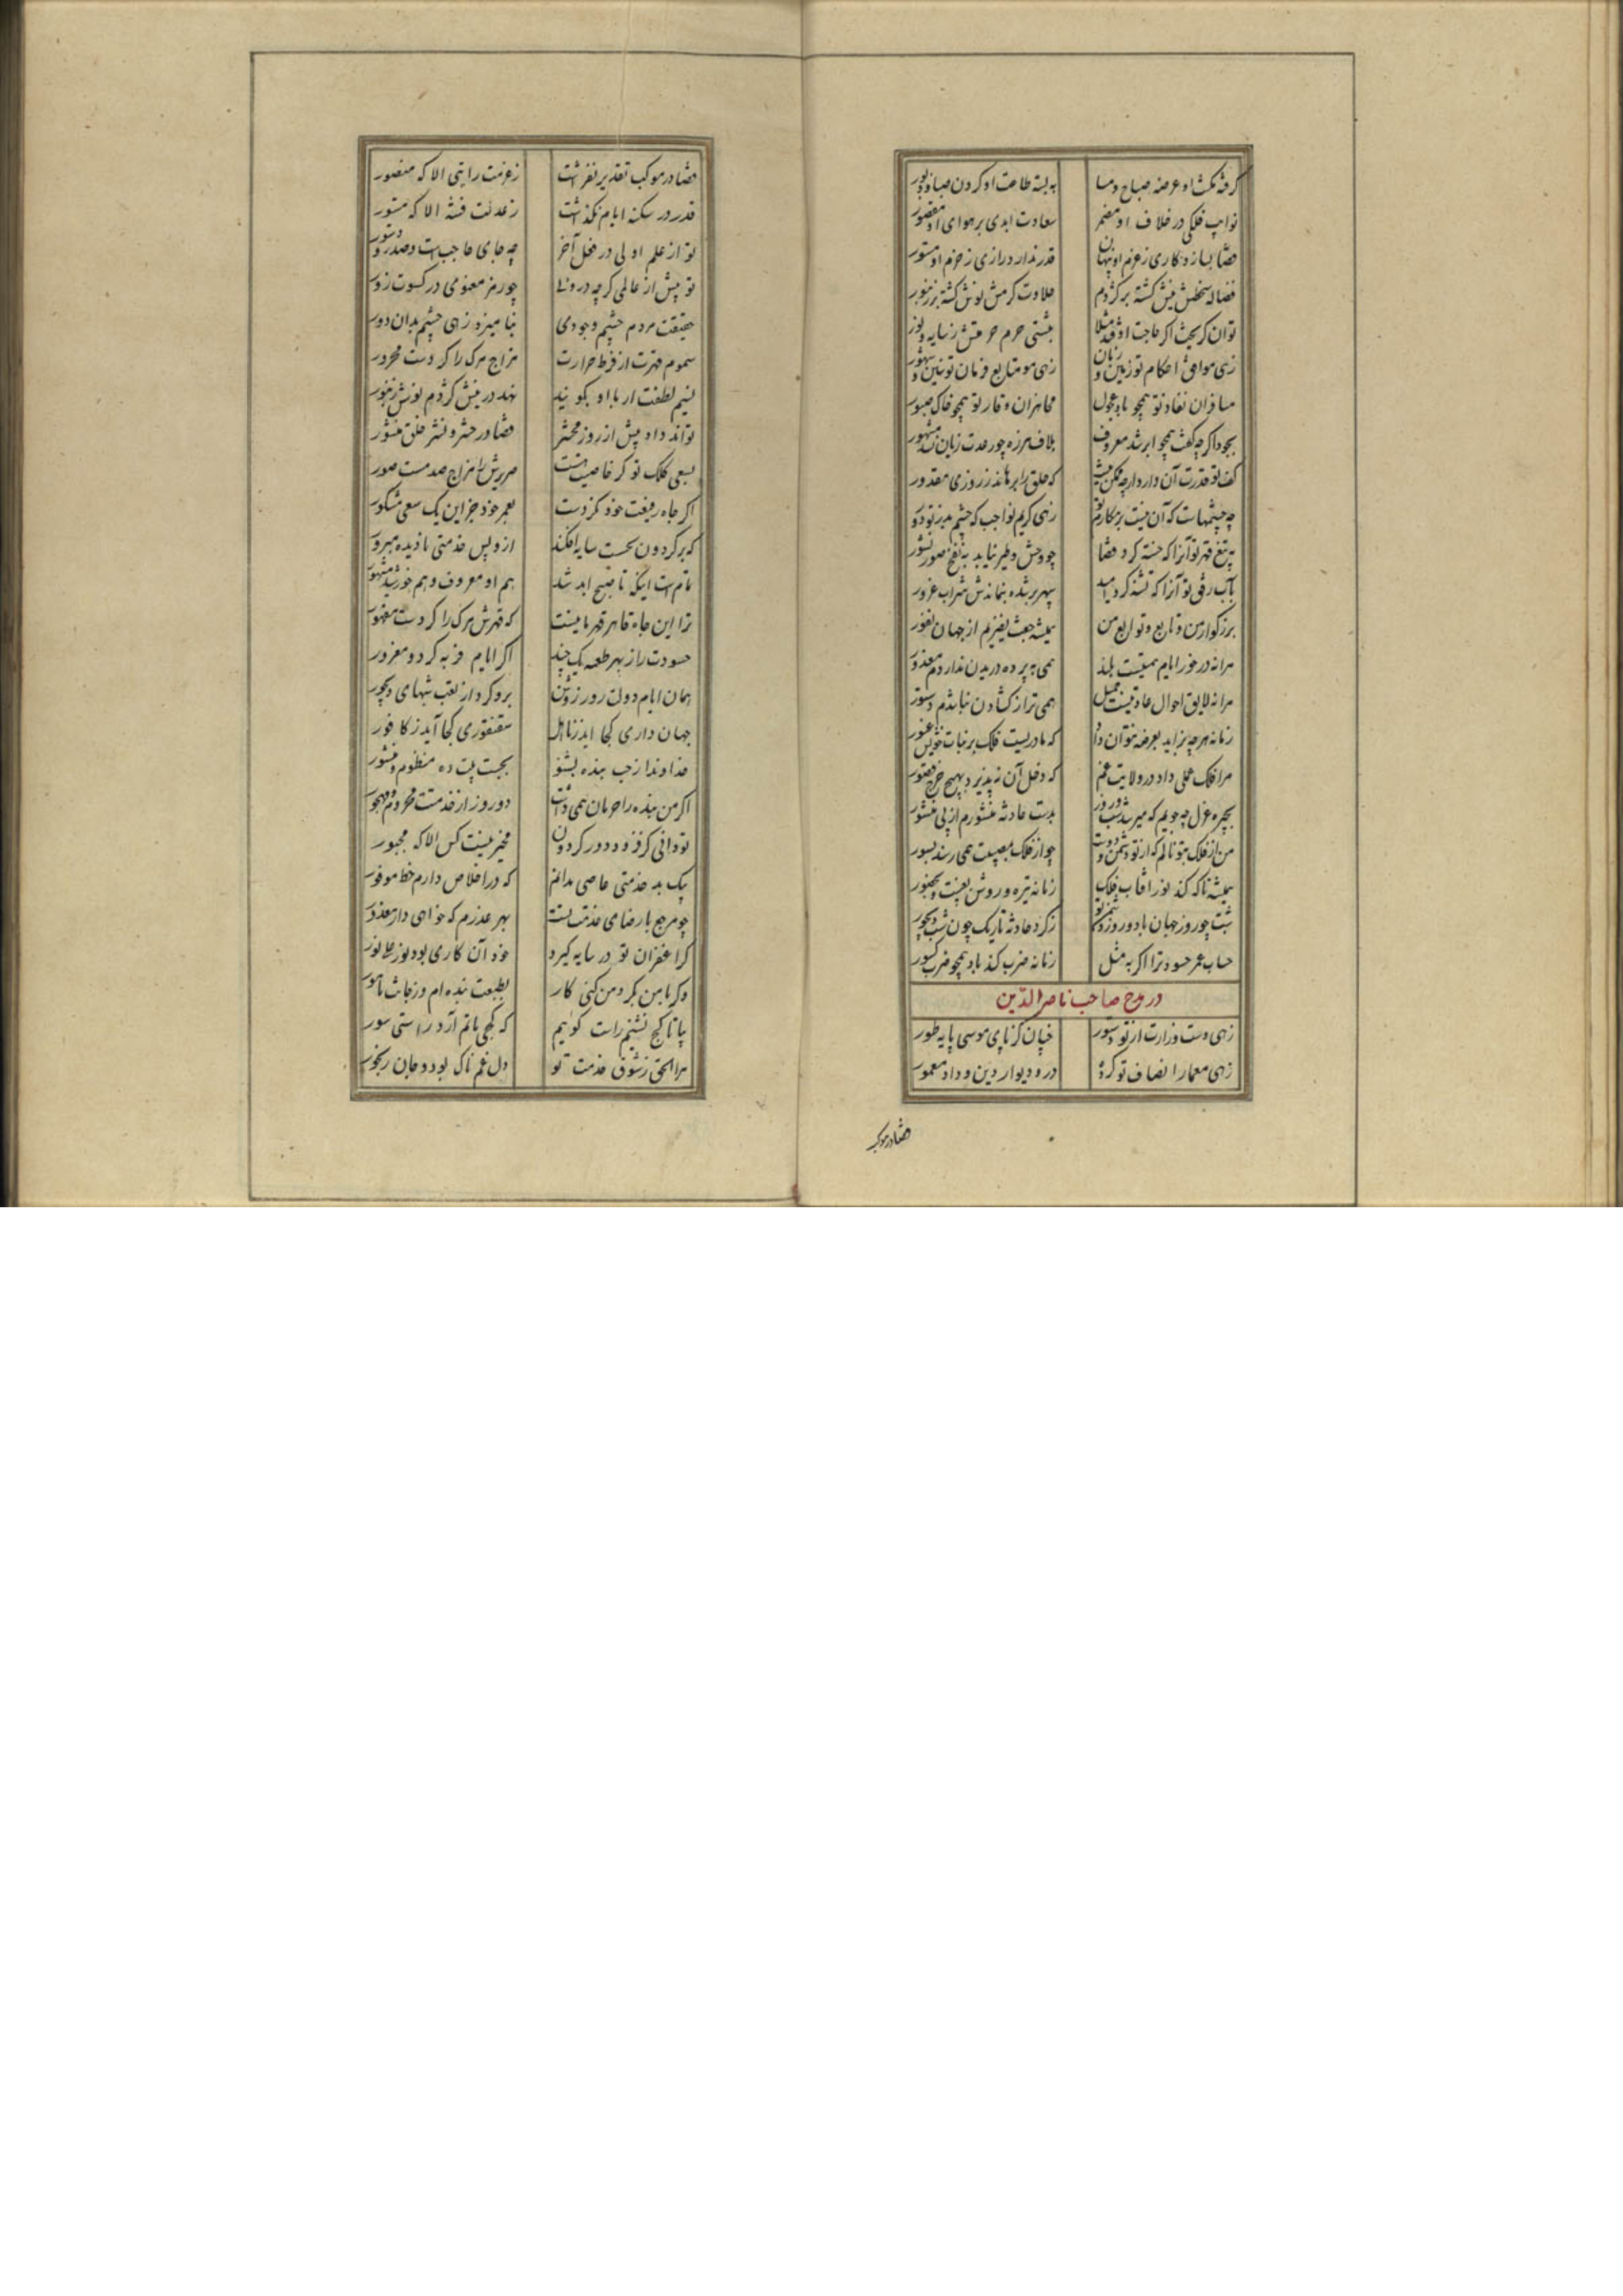 گرفته مکث او عرضه صباح و مسا به بسته طاعت او گردن صبا و دبور
نوایب فلکی در خلاف او مضمر سعادت ابدی بر هوای او مقصور
قضا بسازد کاری ز عزم او پنهان قدر ندارد رازی ز حزم او مستور
نیش گشته بر کژدم حلاوت کرمش نوش گشته بر زنبور
توان گریخت اگر حاجت اوفتد مثلا به پشتی حرم حرمتش ز سایه و نور
زهی موافق احکام تو زمین و زمان زهی متابع فرمان تو سنین و شهور
مسافران نفاذ تو همچو باد عجول مجاهزان وقار تو همچو خاک صبور
بجود اگر چه کفت همچو ابر شد معروف بلاف هرزه چو رعدت زبان نشد مشهور
کف تو قدرت آن دارد ارچه ممکن نیست که خلق را برهاند ز روزی مقدور
چه چشمهاست که آن نیست بر مکارم تو زهی کریم بواجب که چشم بد ز تو دور
به تیغ قهر تو آنرا که خسته کرد قضا چو وحش و طیر نیاید به نفخ صور نشور
بآب رفق تو آنرا که تشنه کرد امید سپهر بر شده ننماندش شراب غرور
بزرگوارا من و تابع و توابع من همیشه جفت نفیریم از جهان نفور
مرا نه در خور ایام همتیست بلند همی به پرده دریدن نداردم معذور
مرا نه لایق احوال عادتیست جمیل همی تراز گشادن نباشدم دستور
زمانه هر چه بزاید بعرضه نتوان داد که مادریست فلک بر بنات خویش غیور
مرا فلک عملی داد در ولایت غم که دخل آن نپذیرد بهیچ خرج قصور
بخیره عزل چه جویم که میرسد شب و روز بدست حادثه منشورم از پی منشور
من از فلک بتو نالم که از تو دشمن و دوست چو از فلک بمصیبت همی رسند بسور
همیشه تا که کند نور آفتاب فلک زمانه تیره و روشن بغیبت و بحضور
شبت چو روز جهان باد و روز دشمن تو ز گرد حادثه تاریک چون شب دیجور
حساب عمر حسود ترا اگر به مثل زمانه ضرب کند باد همچو ضرب کسور
در مدح صاحب ناصر الدّین
زهی دست وزارت از تو دستور چنان کز پای موسی پایه طور
زهی معمار انصاف تو کرده در و دیوار دین و داد معمور
قضا در موکب
قضا در موکب تقدیر نفراشت ز عزمت رایتی الا که منصور
قدر در سکنه ایام نگذاشت ز عدلت فتنه الا که مستور
تو از علم اولی در فعل آخر چه جای حاجب است و صدر و دستور
تو پیش از عالمی گر چه درونی چو رمز معنوی در کسوت زور
حقیقت مردم چشم وجودی بنامیزد زهی چشم بدان دور
سموم قهرت از فرط حرارت مزاج مرگ را کردست محرور
نسیم لطفت ار با او بکوشد نهد در نیش کژدم نوش زنبور
تواند داد پیش از روز محشر قضا در حشر و نشر خلق منشور
بسعی کلک تو کز خاصیت هست صریرش را مزاج صدمت صور
اگر جاه رفیعت خود نکردست بعمر خود جز این یک سعی مشکور
که بر گردون بحسبت سایه افکند از و بس خدمتی نادیده مبرور
تمامست اینکه تا صبح ابد شد هم او معروف و هم خورشید مشهور
ترا این جاه قاهر قهرمانیست که قهرش مرگ را کردست مقهور
حسودت را ز بهر طعمه یک چند اگر ایام فربه کرد و مغرور
همان ایام دولت روز روشن برو کرد از تعب شبهای دیجور
جهان داری کجا آید ز نااهل سقنقوری کجا آید ز کافور
خداوندا ز حسب بنده بشنو بحسبت بیت ده منظوم و منثور
اگر من بنده را حرمان همی داشت دو روز از خدمتت محروم و مهجور
تو دانی کز فرود دور گردون مخیر نیست کس الا که مجبور
بیک بد خدمتی عاصی مدانم که در اخلاص دارم حظ موفور
چو مرجع با رضای خدمت تست بهر عذرم که خواهی دار معذور
کرا غفران تو در سایه گیرد خود آن کاری بود نور علی نور
و گر با من بکرد من کنی کار بطبعت بنده ام وز جانت مامور
بیا تا کج نشینم راست گویم که کجی ماتم آرد راستی سور
مرا الحق ز شوق خدمت تو دل غمناک بود و جان رنجور